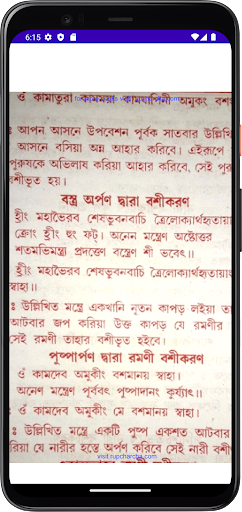 6:15
ওঁ কামাতুরা কামময়া কামযাপিনী অমুকং বশ
ঃ আপন আসনে উপবেশন পূর্বক সাতবার উল্লিখি
আসনে বসিয়া অন্ন আহার করিবে। এইরূপে
পুরুষকে অভিলাষ করিয়া আহার করিবে, সেই পুরু
বশীভূত হয়।
বস্ত্র অর্পণ দ্বারা বশীকরণ
হ্রীং মহাভৈরব শেষভুবনবাচি ত্রৈলোক্যার্থহৃতায়
ক্রোং হ্রীং হুং ফট্। অনেন মন্ত্রেণ অষ্টোত্তর
শতমভিমন্ত্র্য প্রদত্তেণ বস্ত্রেণ শী ভবেৎ।।
হ্রীং মহাভৈরব শেষভুবনবাচি ত্রৈলোক্যার্থহৃতায়াং
স্বাহা।।
ঃ উল্লিখিত মন্ত্রে একখানি নূতন কাপড় লইয়া তা
আটবার জপ করিয়া উক্ত কাপড় যে রমণীর
সেই রমণী তাহার বশীভূত হইবে।
পুষ্পার্পণ দ্বারা রমণী বশীকরণ
ওঁ কামদেব অমুকীং বশমানয় স্বাহা।
অনেণ মন্ত্রেণ পূর্ববৎ পুষ্পাদানং কুর্য্যাৎ।।
ওঁ কামদেব অমুকীং মে বশমানয় স্বাহা।
ঃ উল্লিখিত মন্ত্রে একটি পুষ্প একশত আটবার
যে নারীর হস্তে অর্পণ করিবে সেই নারী বশী
visit.rupcharcha.com